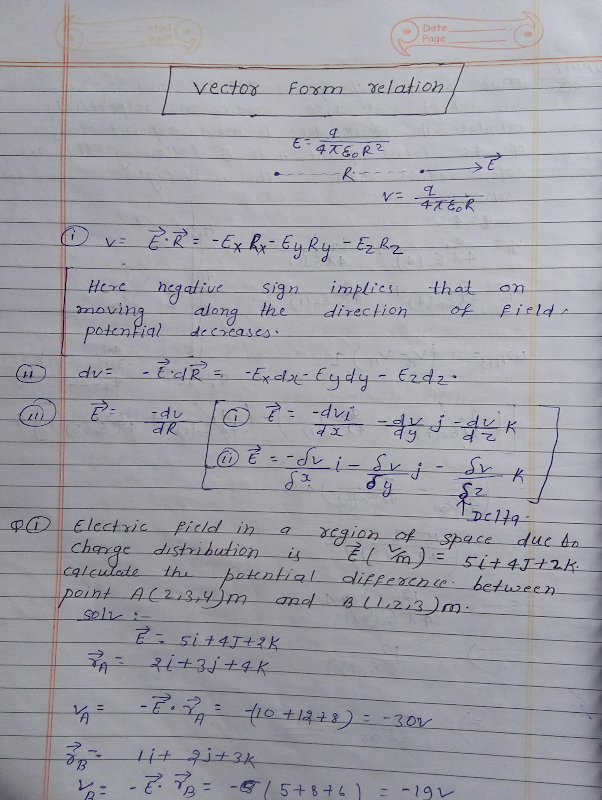 Date
Page
Vector Form relation
E = q / 4πε₀R²
R
E⃗
V = q / 4πε₀R
(i) V = E⃗·R⃗ = -ExRx - EyRy - EzRz
Here negative sign implies that on
moving along the direction of field,
potential decreases.
(ii) dv = -E⃗·dR⃗ = -Exdx - Eydy - Ezdz.
(iii) E⃗ = -dv/dR [ (i) E⃗ = -dv/dx i - dv/dy j - dv/dz K
(ii) E⃗ = -δv/δx i - δv/δy j - δv/δz K ]
↑ Delta
Q(1) Electric field in a region of space due to
charge distribution is E⃗ (V/m) = 5i + 4J + 2K.
calculate the potential difference between
point A(2,3,4)m and B(1,2,3)m.
solv :-
E⃗ = 5i + 4J + 2K
r⃗A = 2i + 3j + 4K
VA = -E⃗·r⃗A = -(10 + 12 + 8) = -30V
r⃗B = 1i + 2j + 3K
VB = -E⃗·r⃗B = -(5 + 8 + 6) = -19V